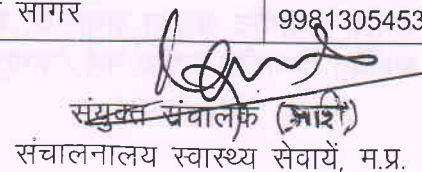 सागर 9981305453
संयुक्त संचालक
संचालनालय स्वास्थ्य सेवायें, म.प्र.